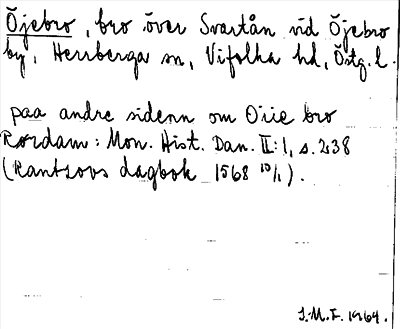 Öjebro, bro över Svartån vid Öjebro
by, Herrberga sn, Vifolka hd, Östg. l.
paa andre sidenn om Oiie bro
Rordam: Mon. Hist. Dan. II:1, s. 238
(Rantzovs dagbok 1568 10/1).
J.M.F. 1964.